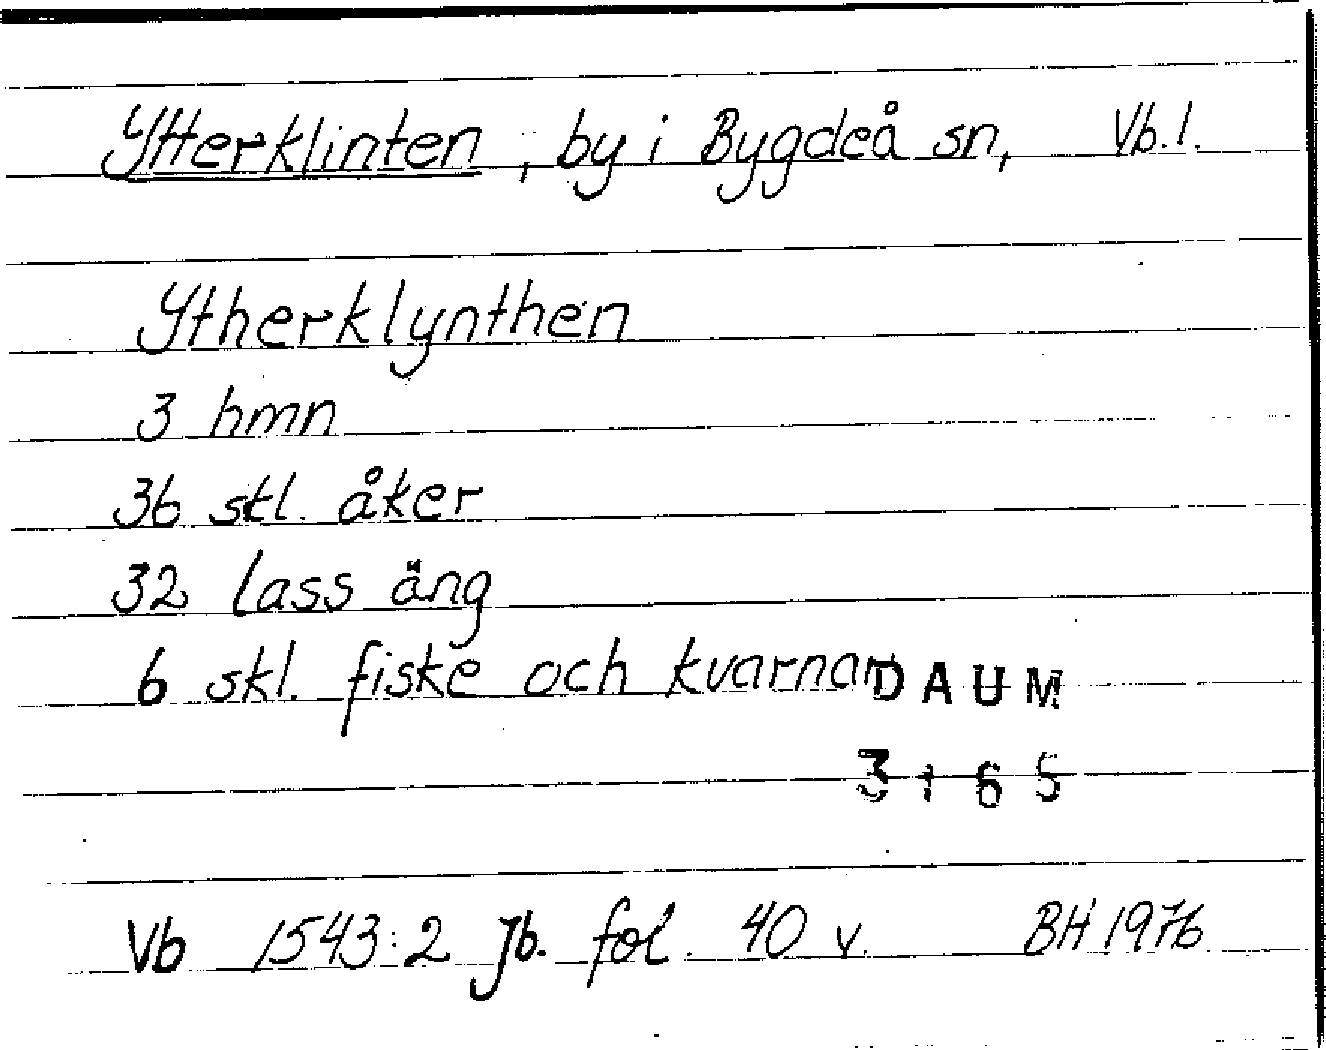 Ytterklinten, by i Bygdeå sn, Vb.l.
Ytherklynthen
3 hmn
36 stl. åker
32 lass äng
6 skl. fiske och kvarnar
DAUM
3165
Vb 1543:2 Jb. fol. 40 v. BH 1976